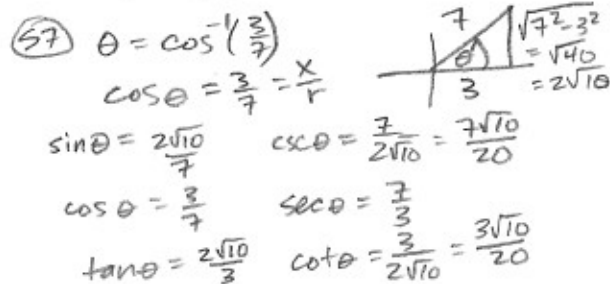 57 θ = cos⁻¹(3/7)
cosθ = 3/7 = x/r
7
√7²-3²
= √40
= 2√10
θ
3
sinθ = 2√10/7 cscθ = 7/2√10 = 7√10/20
cosθ = 3/7 secθ = 7/3
tanθ = 2√10/3 cotθ = 3/2√10 = 3√10/20